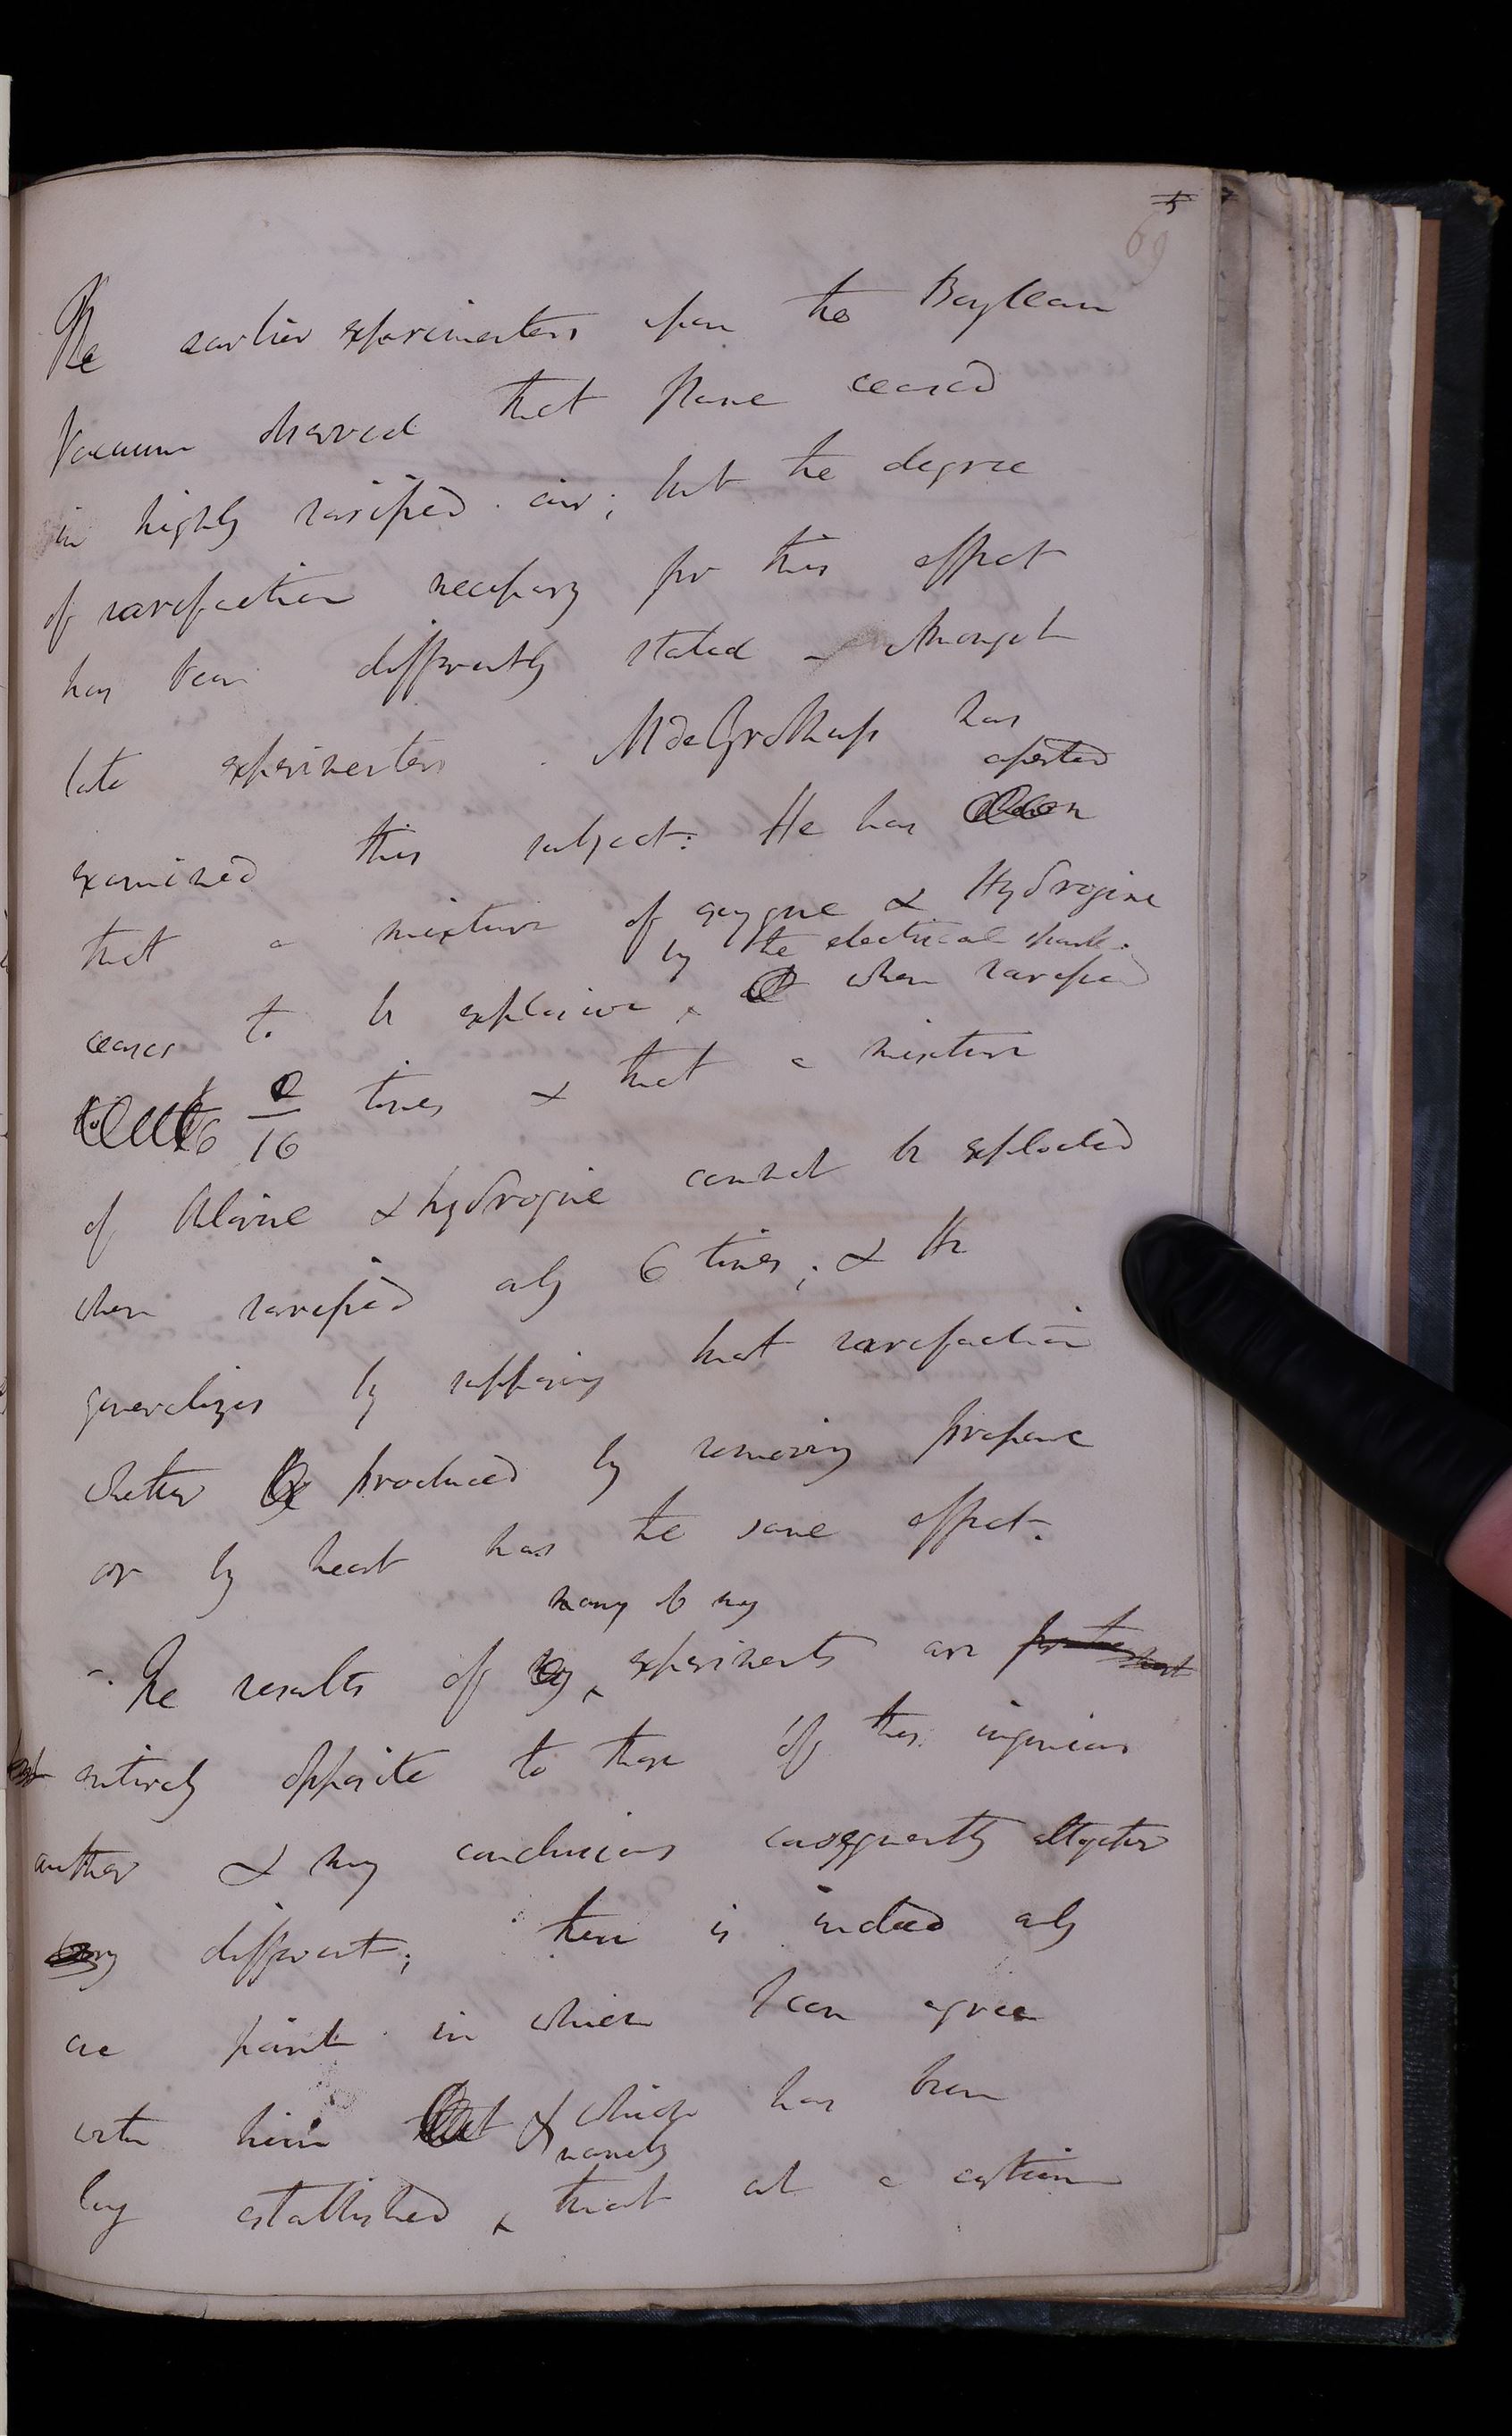 5
69
The earlier experimenters upon the Boylean
Vacuum observed that flame ceased
in highly rarified air; but the degree
of rarefaction necessary for this effect
has been differently stated – Amongst
late experimenters M de Grotthuss has
asserted
examined this subject: He has
that a mixture of oxygene & Hydrogine
by the electrical spark.
ceases to be explosive when rarefied
16 times & that a mixture
of Clorine & hydrogine cannot be exploded
when rarefied only 6 times; & He
generalizes by supposing that rarefaction
whether produced by removing pressure
or by heat has the same effect.
many of my
The results of my experiments are
entirely opposite to those of this ingenious
author & my conclusions consequently altogether
very different; there is indeed only
one point in which I can agree
with him that & which has been
namely
long established that at a certain